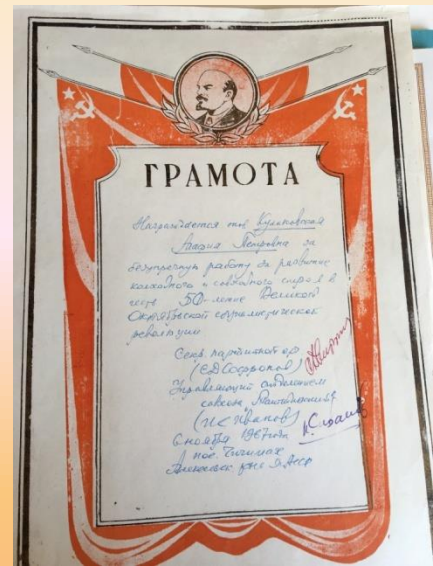 ГРАМОТА
Награждается тов Куликовская
Петровна за
безупречную работу за развитие
колхозного и совхозного строя в
честь 50-летие Великого
Октябрьской социалистической
революции
Секр. парторганиз
(ЕД Софронов)
Управляющий отделением
совхоза
(ИС Иванов)
6 ноября 1967 года
пос. Чычымах
р-на Я АССР